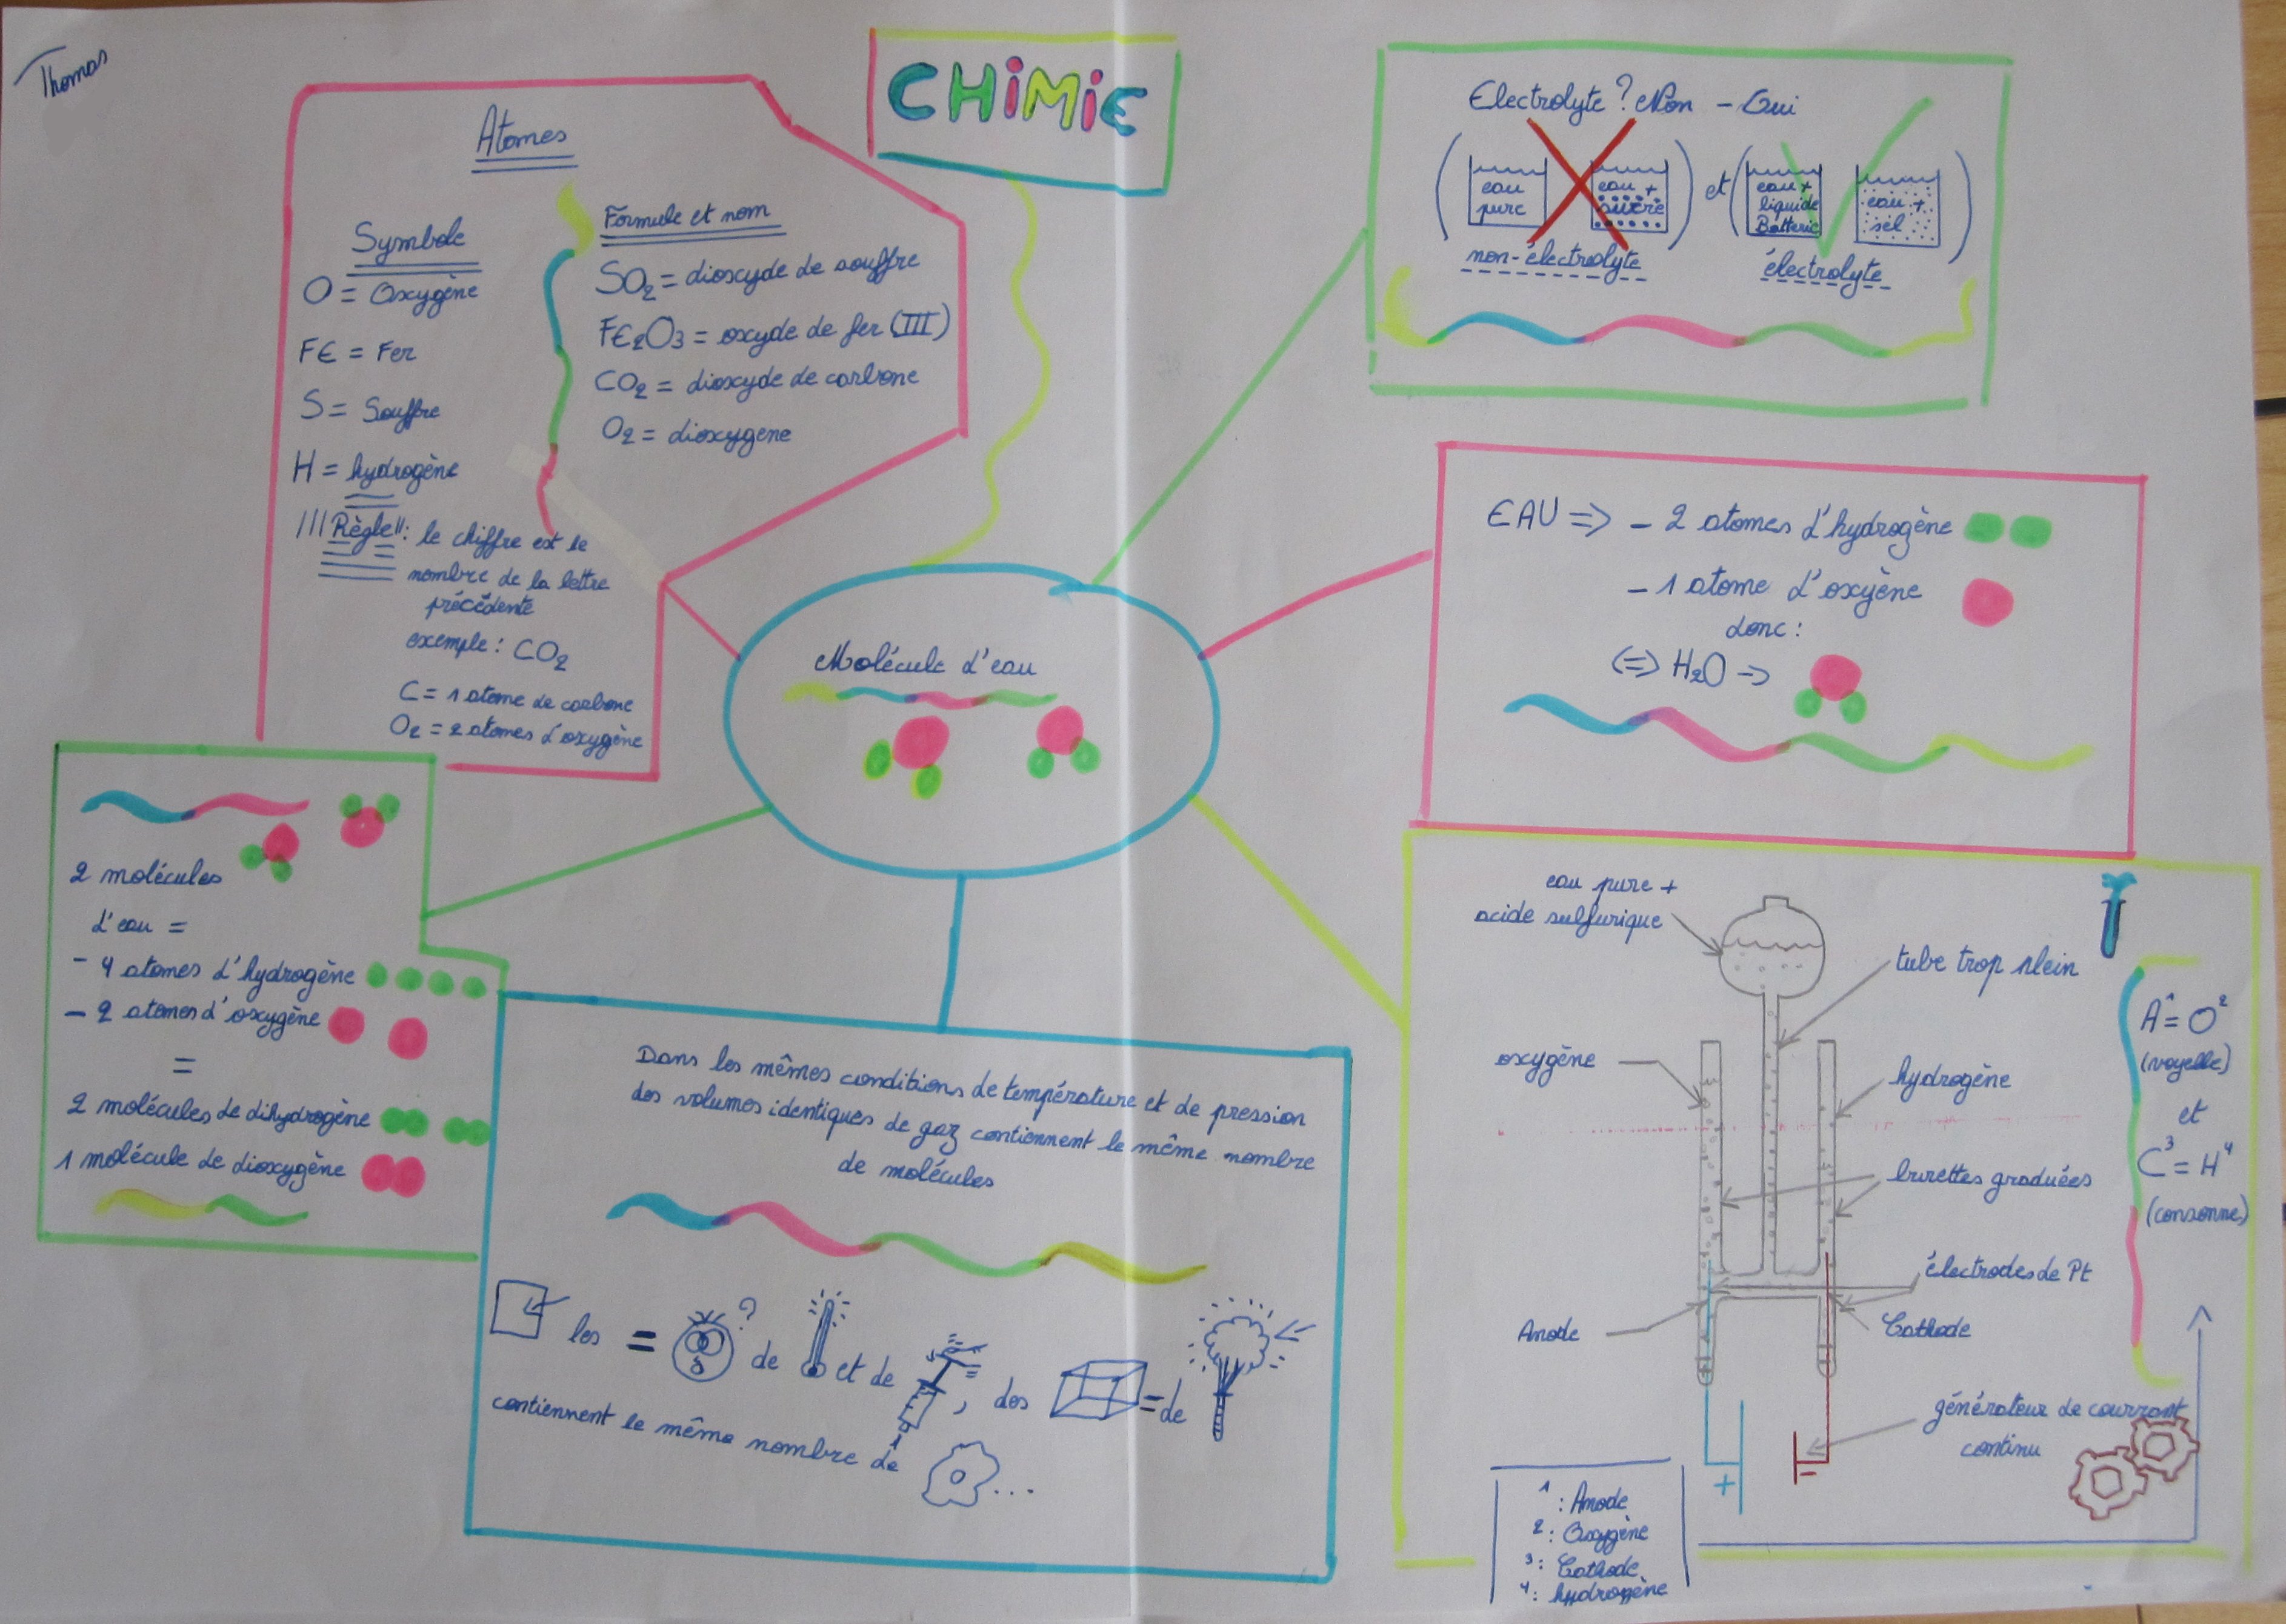 Thomas
CHiMiE
Atomes
Symbole
O = Oxygène
FE = Fer
S = Souffre
H = hydrogène
Formule et nom
SO2 = dioxyde de souffre
FE2O3 = oxyde de fer (III)
CO2 = dioxyde de carbone
O2 = dioxygene
Règle !! : le chiffre est le
nombre de la lettre
précédente
exemple : CO2
C = 1 atome de carbone
O2 = 2 atomes d'oxygène
Electrolyte ? Non - Oui
eau
pure
eau +
sucre
et
eau +
liquide
Batterie
eau +
sel
non-électrolyte
électrolyte
EAU => - 2 atomes d'hydrogène
- 1 atome d'oxyène
donc :
(=) H2O ->
Molécule d'eau
2 molécules
d'eau =
- 4 atomes d'hydrogène
- 2 atomes d'oxygène
=
2 molécules de dihydrogène
1 molécule de dioxygène
Dans les mêmes conditions de température et de pression
des volumes identiques de gaz contiennent le même nombre
de molécules
les = ? de et de , des = de
contiennent le même nombre de ...
eau pure +
acide sulfurique
tube trop plein
oxygène
hydrogène
burettes graduées
électrodes de Pt
Anode
Cathode
générateur de courrant
continu
+
-
A¹ = O²
(voyelle)
et
C³ = H⁴
(consonne)
1 : Anode
2 : Oxygène
3 : Cathode
4 : hydrogène